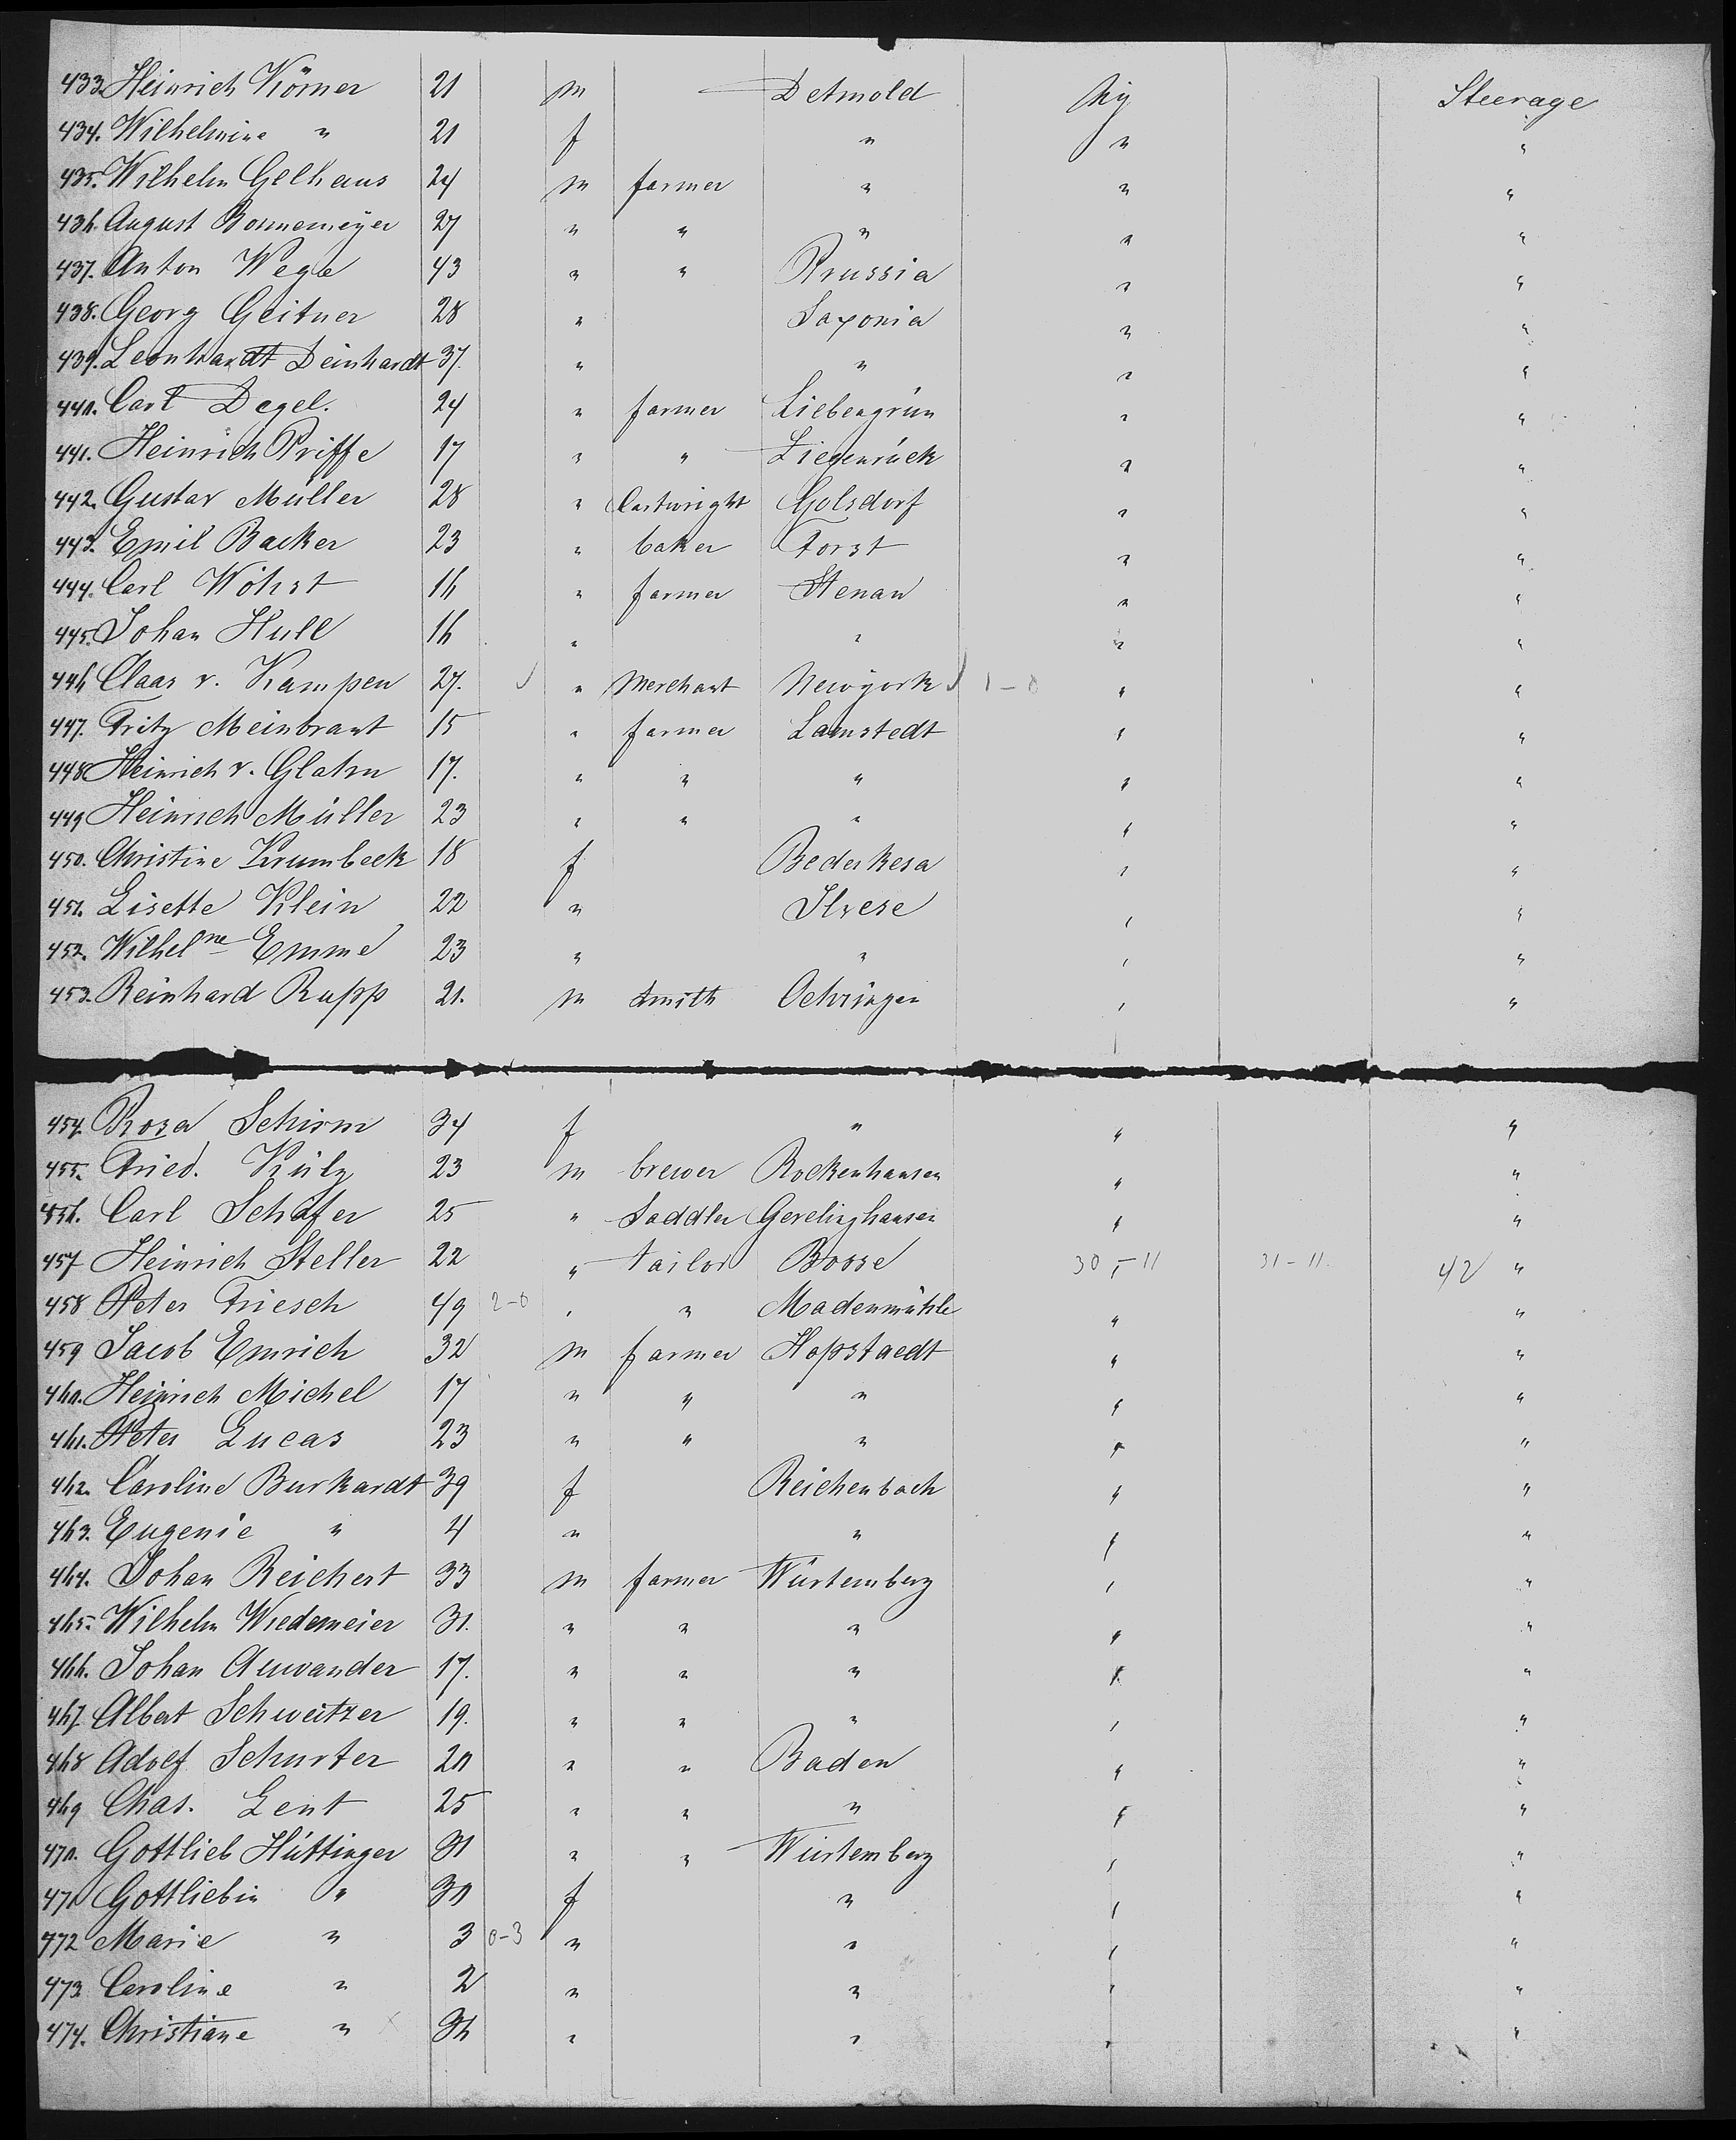 433. Heinrich Körner 21 m Detmold Ny Steerage
434. Wilhelmine " 21 f " " "
435. Wilhelm Gelhaus 24 m farmer " " "
436. August Bonnemeyer 27 " " " " "
437. Anton Wege 43 " " Prussia " "
438. Georg Geitner 28 " Saxonia " "
439. Leonhardt Deinhardt 37. " " " "
440. Carl Degel. 24 " farmer Liebengrün " "
441. Heinrich Priffe 17 " " Ziegenrück " "
442. Gustav Müller 28 " Cartwright Golsdorf " "
443. Emil Backer 23 " baker Forst " "
444. Carl Wöhst 16 " farmer " "
445. Johan Hull 16 " " " "
446 Claas v. Kampen 27. " Merchant Newyork 1-0 " "
447. Fritz Meinbrant 15 " farmer Lamstedt " "
448 Heinrich v. Glahn 17. " " " " "
449 Heinrich Müller 23 " " " " "
450. Christine Krumbeck 18 f Bederkesa " "
451. Lisette Klein 22 " Ilvese " "
452. Wilhelne Emme 23 " " " "
453. Reinhard Rupp 21. m smith Oehringen " "
454. Rosa Schirm 34 f " " "
455. Fried. Külz 23 m brewer Rockenhausen " "
456. Carl Schäfer 25 " Saddler Gerelinghausen " "
457 Heinrich Steller 22 " tailor Bosse 30-11 " 31-11 42 "
458 Peter Friesch 49 2-0 " " Madenmühle " "
459 Jacob Emrich 32 m farmer Hopstaedt " "
460. Heinrich Michel 17 " " " " "
461. Peter Lucas 23 " " " " "
462. Caroline Burkardt 39 f Reichenbach " "
463. Eugenie " 4 " " " "
464. Johan Reichert 33 m farmer Würtemberg " "
465. Wilhelm Wiedemeier 31. " " " " "
466. Johan Auwander 17. " " " " "
467 Albert Schweitzer 19. " " " " "
468 Adolf Schurter 20 " " Baden " "
469 Chas. Lent 25 " " " " "
470. Gottlieb Hüttinger 31 " " Würtemberg " "
471 Gottliebin " 30 f " " "
472 Marie " 3 0-3 " " " "
473 Caroline " 2 " " " "
474. Christiane " x 36 " " " "